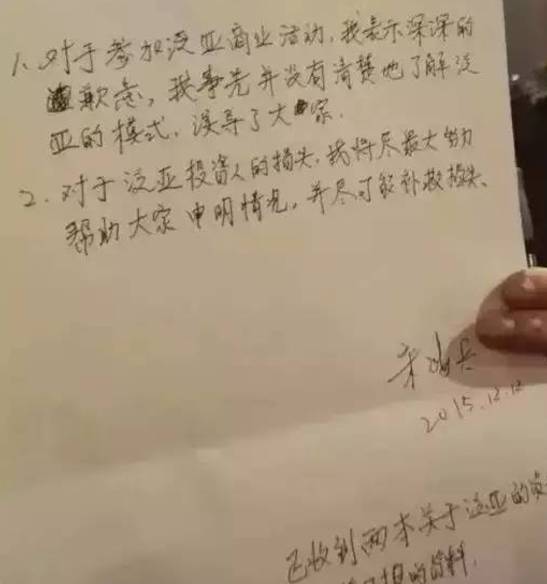 1、对于参加泛亚商业活动,我表示深深的
歉意,我事先并没有清楚地了解泛
亚的模式,误导了大家.
2、对于泛亚投资人的损失,我将尽最大努力
帮助大家申明情况,并尽可能补救损失、
宋鸿兵
2015.12.12
已收到两本关于泛亚的
的资料.